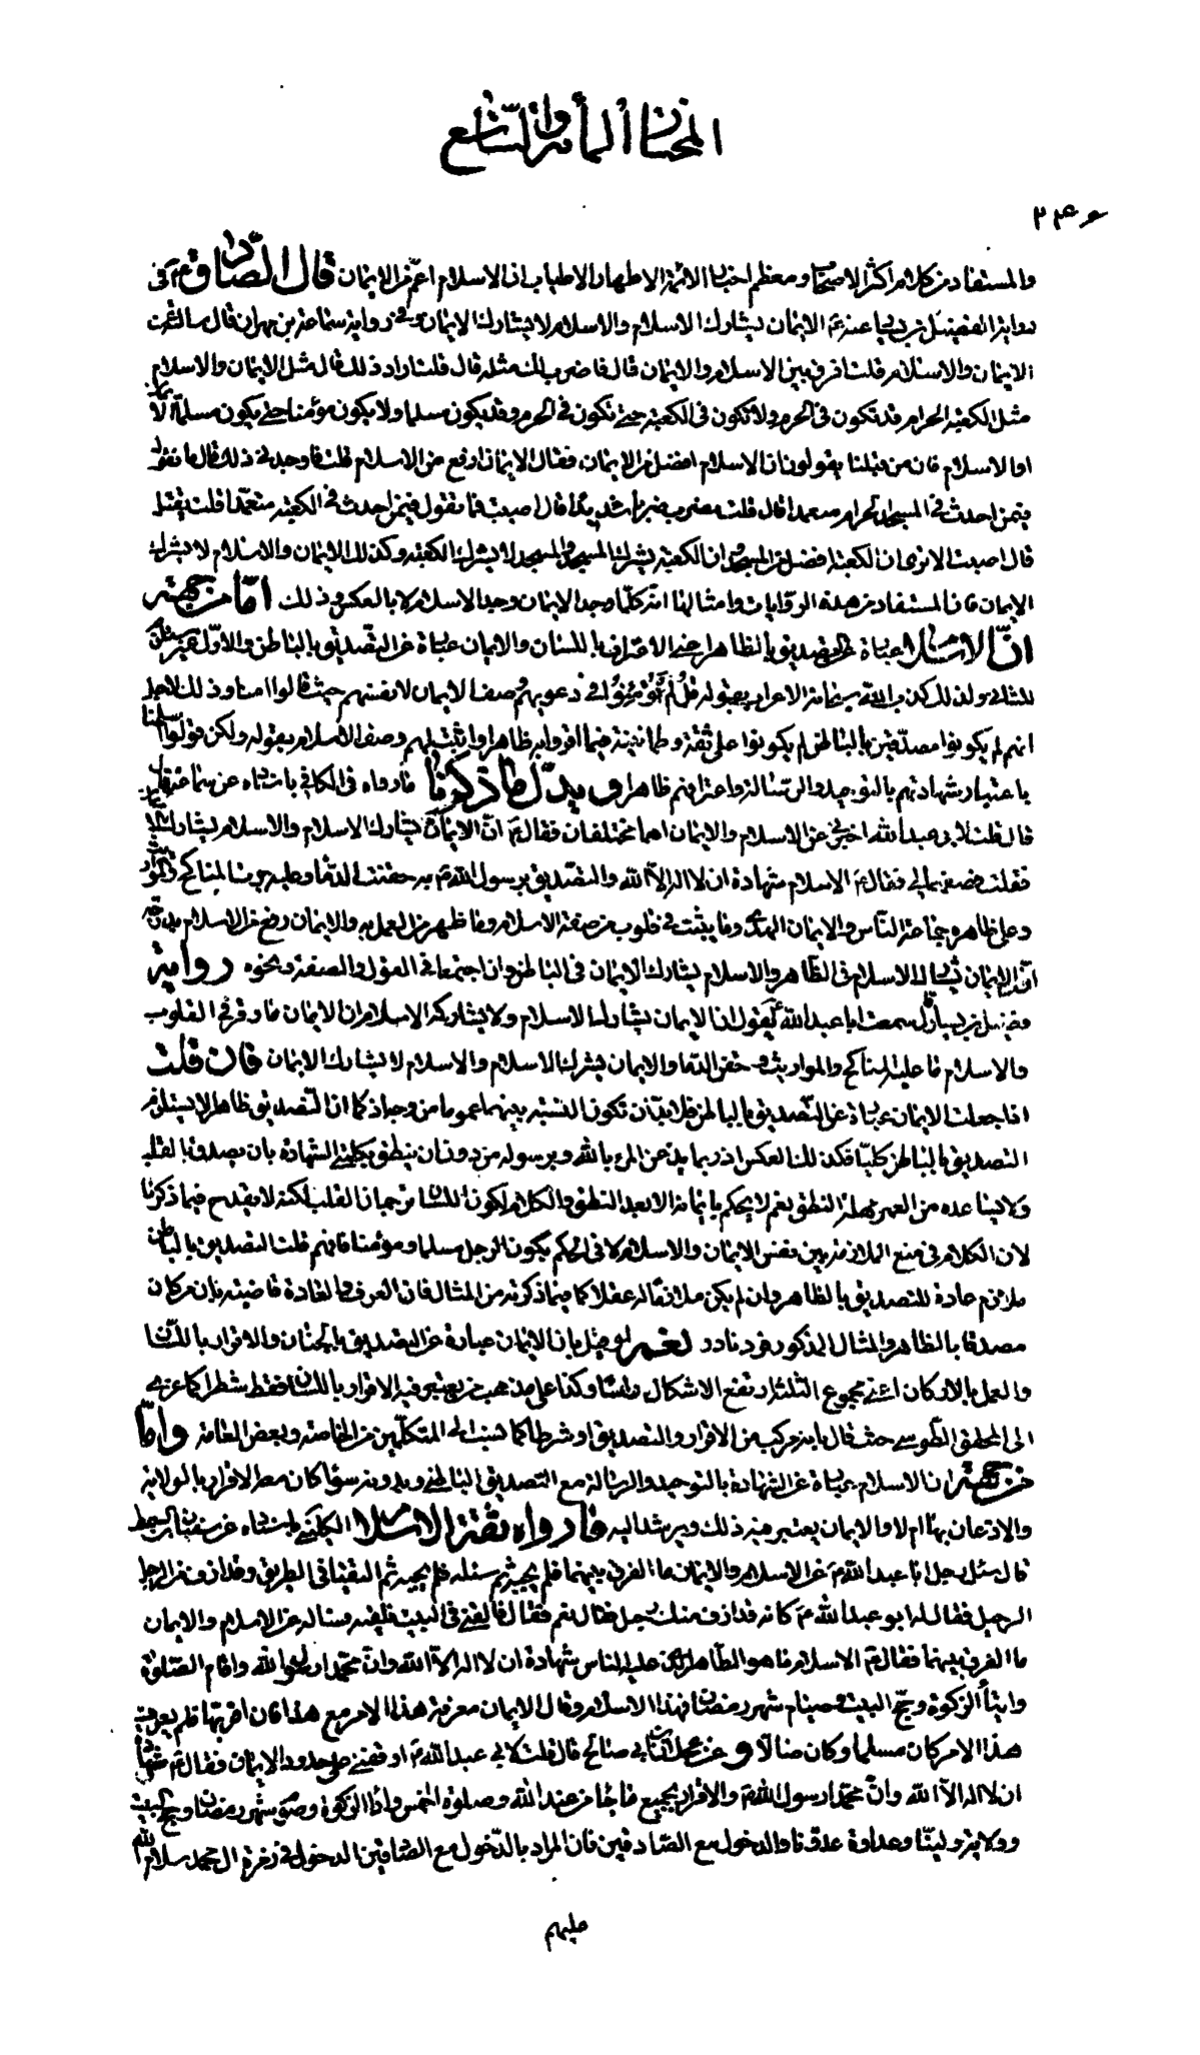 المختار المأة والتاسع
٢٤٦
والمستفاد من كلام اكثر الاصحاب ومعظم اخبار الائمة الاطهار الاطياب ان الاسلام اعم من الايمان قال الصادق ع في
رواية الفضيل بن يسار عنه ع الايمان يشارك الاسلام والاسلام لا يشارك الايمان وفي رواية سماعة بن مهران قال سالته عن
الايمان والاسلام قلت افرق بين الاسلام والايمان قال فاضرب لك مثله قال قلت اراد ذلك قال مثل الايمان والاسلام
مثل الكعبة الحرام من الحرم قد تكون في الحرم ولا تكون في الكعبة حتى تكون في الحرم وقد يكون مسلما ولا يكون مؤمنا حتى يكون مسلما
او الاسلام فان من قبلنا يقولون ان الاسلام افضل من الايمان فقال الايمان ارفع من الاسلام قلت فاوجد في ذلك قال ما تقول
فيمن احدث في المسجد الحرام متعمدا قال قلت يضرب ضربا شديدا قال اصبت فما تقول فيمن احدث في الكعبة متعمدا قلت يقتل
قال اصبت الا ترى ان الكعبة افضل من المسجد وان الكعبة يشرك المسجد والمسجد لا يشرك الكعبة وكذلك الايمان والاسلام لا يشرك
الايمان فان المستفاد من هذه الروايات وامثالها انه كلما وجد الايمان وجد الاسلام لا بالعكس وذلك اما من جهة
ان الاسلام عبارة عن التصديق بالظاهر اعني الاعتراف باللسان والايمان عبارة عن التصديق بالباطن والاول غير مستلزم
للثاني ولذلك كذب الله سبحانه الاعراب بقوله قل لم تؤمنوا في دعويهم وصف الايمان لانفسهم حيث قالوا امنا وذلك لاجل
انهم لم يكونوا مصدقين بالباطن لم يكونوا على ثقة وطمانينة فيما اقروا به ظاهرا واثبت لهم وصف الاسلام بقوله ولكن قولوا اسلمنا
باعتبار شهادتهم بالتوحيد والرسالة واعترافهم ظاهرا ويدل على ما ذكرنا ما رواه في الكافي باسناده عن سماعة
قال قلت لابي عبد الله اخبرني عن الاسلام والايمان اهما مختلفان فقال ع ان الايمان يشارك الاسلام والاسلام لا يشارك
فقلت فصفهما لي فقال ع الاسلام شهادة ان لا اله الا الله والتصديق برسول الله ص به حقنت الدماء وعليه جرت المناكح والمواريث
وعلى ظاهره جماعة الناس والايمان الهدى وما يثبت في قلوب من صفة الاسلام وما ظهر من العمل به والايمان ارفع من الاسلام بدرجة
ان الايمان يشارك الاسلام في الظاهر والاسلام لا يشارك الايمان في الباطن وان اجتمعا في القول والصفة ونحوه رواية
فضيل بن يسار قال سمعت ابا عبد الله ع يقول ان الايمان يشارك الاسلام ولا يشاركه الاسلام ان الايمان ما وقر في القلوب
والاسلام ما عليه المناكح والمواريث وحقن الدماء والايمان يشرك الاسلام والاسلام لا يشارك الايمان فان قلت
اذا جعلت الايمان عبارة عن التصديق بالباطن فلا بد ان تكون النسبة بينهما عموما من وجه اذ كما ان التصديق ظاهرا لا يستلزم
التصديق بالباطن كليا فكذلك العكس اذ ربما يذعن المرء بالله وبرسوله من دون ان ينطق بكلمتي الشهادة بان يصدق بالقلب
ولا يساعده من العمر مهلة النطق نعم لا يحكم بايمانه الا بعد النطق والكلام لكون اللسان ترجمان القلب لكنه لا يقدح فيما ذكرنا
لان الكلام في منع الملازمة بين نفس الايمان والاسلام لا في الحكم بكون الرجل مسلما ومؤمنا فافهم قلت التصديق بالباطن
ملازم عادة للتصديق بالظاهر وان لم يكن ملازما له عقلا كما فيما ذكرته من المثال فان العرف والعادة قاضية بان من كان
مصدقا بالظاهر والمثال المذكور فرد نادر نعم لو قيل بان الايمان عبارة عن التصديق بالجنان والاقرار باللسان
والعمل بالاركان اعني مجموع الثلثة ارتفع الاشكال راسا وكذا على مذهب من يعتبر فيه الاقرار باللسان فقط شطرا كما عزى
الى المحقق الطوسي حيث قال بانه مركب من الاقرار والتصديق او شرطا كما نسب الى المتكلمين من الخاصة وبعض العامة واما
من جهة ان الاسلام عبارة عن الشهادة بالتوحيد والرسالة مع التصديق الباطني وبدونه سواء كان معه الاقرار بالولاية
والاذعان بها ام لا والايمان يعتبر فيه ذلك ويرشد اليه ما رواه ثقة الاسلام الكليني باسناده عن سفيان بن السمط
قال سئل رجل ابا عبد الله ع عن الاسلام والايمان ما الفرق بينهما فلم يجبه ثم سئله فلم يجبه ثم التقيا في الطريق وقد ازف من الرجل
الرحيل فقال له ابو عبد الله ع كانه قد ازف منك رحيل فقال نعم فقال فالقني في البيت فلقيه فساله عن الاسلام والايمان
ما الفرق بينهما فقال ع الاسلام ما هو الظاهر الذي عليه الناس شهادة ان لا اله الا الله وان محمدا رسول الله واقام الصلوة
وايتاء الزكوة وحج البيت وصيام شهر رمضان فهذا الاسلام وقال الايمان معرفة هذا الامر مع هذا فان اقر بها فلم يعرف
هذا الامر كان مسلما وكان ضالا وعن عجلان ابي صالح قال قلت لابي عبد الله ع اوقفني على حدود الايمان فقال ع شهادة
ان لا اله الا الله وان محمدا رسول الله ص والاقرار بجميع ما جاء من عند الله وصلوة الخمس واداء الزكوة وصوم شهر رمضان وحج البيت
وولاية ولينا وعداوة عدونا والدخول مع الصادقين فان المراد بالدخول مع الصادقين الدخول في زمرة ال محمد سلام الله
عليهم